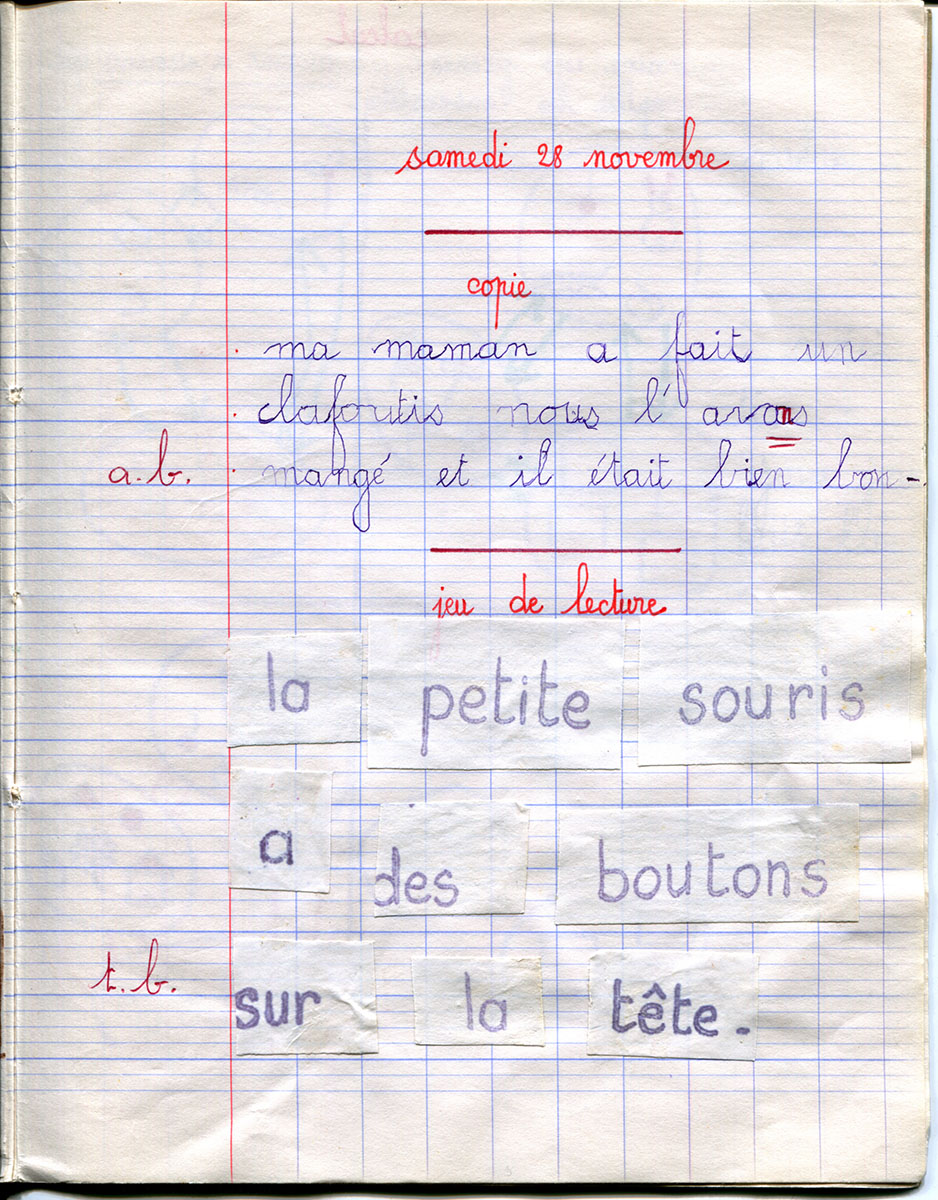 samedi 28 novembre
copie
ma maman a fait un
clafoutis nous l' avons
a.b. mangé et il était bien bon-
jeu de lecture
la petite souris
a des boutons
t.b. sur la tête.